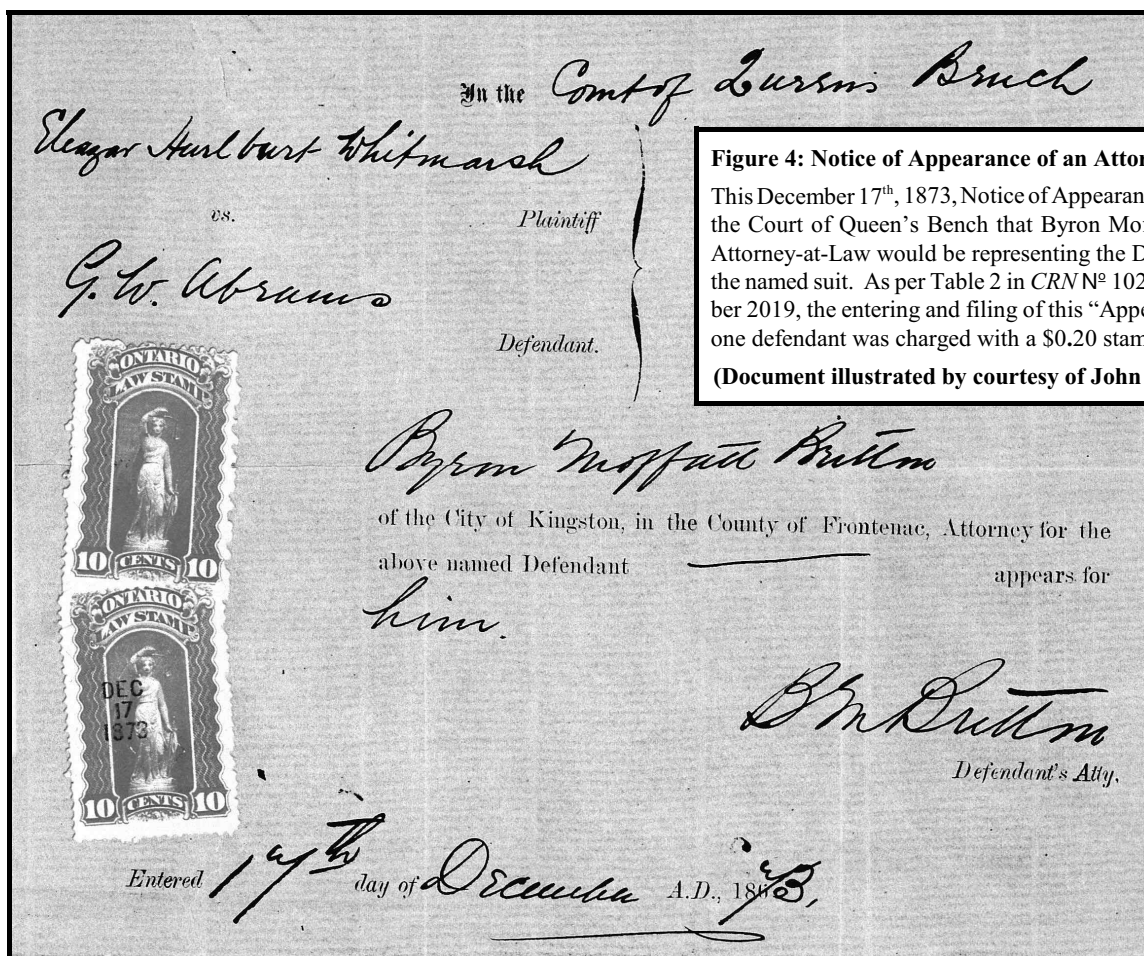 In the Court of Queens Bench
Eleazar Hurlburt Whitmarsh
vs.
Plaintiff
G. W. Abrams
Defendant.
Figure 4: Notice of Appearance of an Attor
This December 17th, 1873, Notice of Appearan
the Court of Queen's Bench that Byron Mo
Attorney-at-Law would be representing the D
the named suit. As per Table 2 in CRN Nº 102
ber 2019, the entering and filing of this “Appe
one defendant was charged with a $0.20 stam
(Document illustrated by courtesy of John
ONTARIO
LAW STAMP
10 CENTS 10
ONTARIO
LAW STAMP
DEC
17
1873
10 CENTS 10
Byron Moffatt Britton
of the City of Kingston, in the County of Frontenac, Attorney for the
above named Defendant appears for
him.
B M Britton
Defendant's Atty.
Entered 17th day of December A.D., 1873,